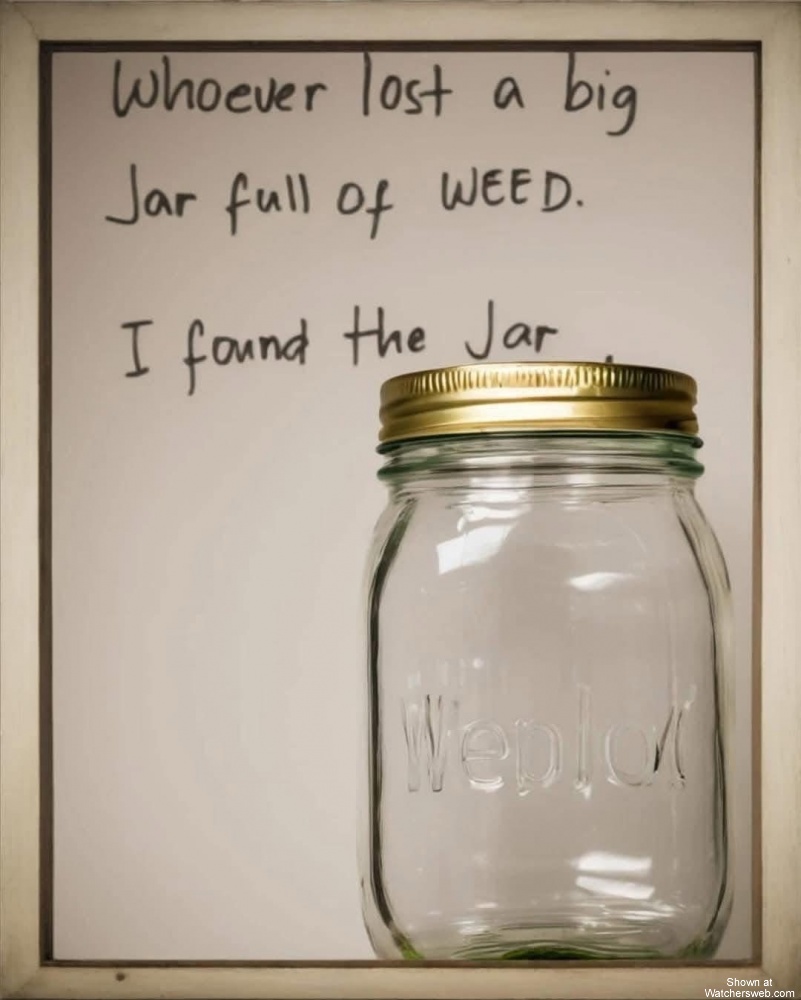 Whoever lost a big
Jar full of WEED.
I found the Jar .
Shown at
Watchersweb.com